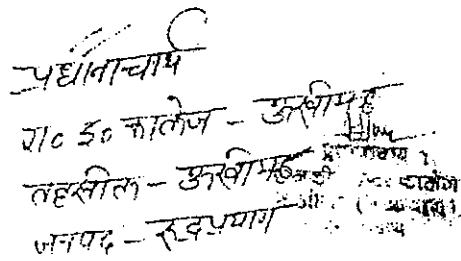 प्रधानाचार्य
रा० इ० कालेज - ऊखीमठ
तहसील - ऊखीमठ
जनपद - रूद्रप्रयाग